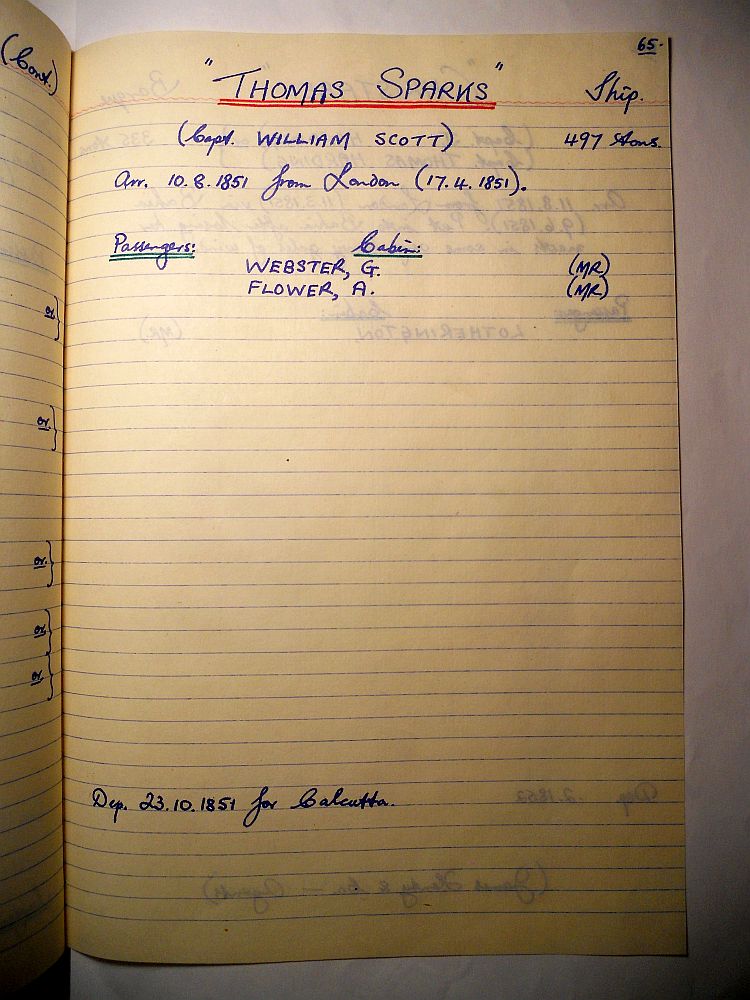 (Cont.)
65.
"THOMAS SPARKS" Ship.
(Capt. WILLIAM SCOTT) 497 tons.
Arr. 10.8.1851 from London (17.4.1851).
Passengers: Cabin:
WEBSTER, G. (MR)
FLOWER, A. (MR)
or.
or.
or.
or.
or.
Dep. 23.10.1851 for Calcutta.